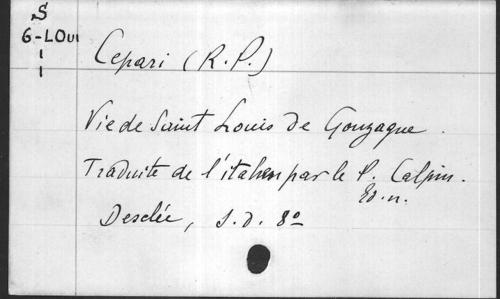 S
6-LOUI
Cepari (R.P.)
Vie de Saint Louis de Gonzague.
Traduite de l'italien par le P. Calpin.
Ed. n.
Desclée, s.d. 8º